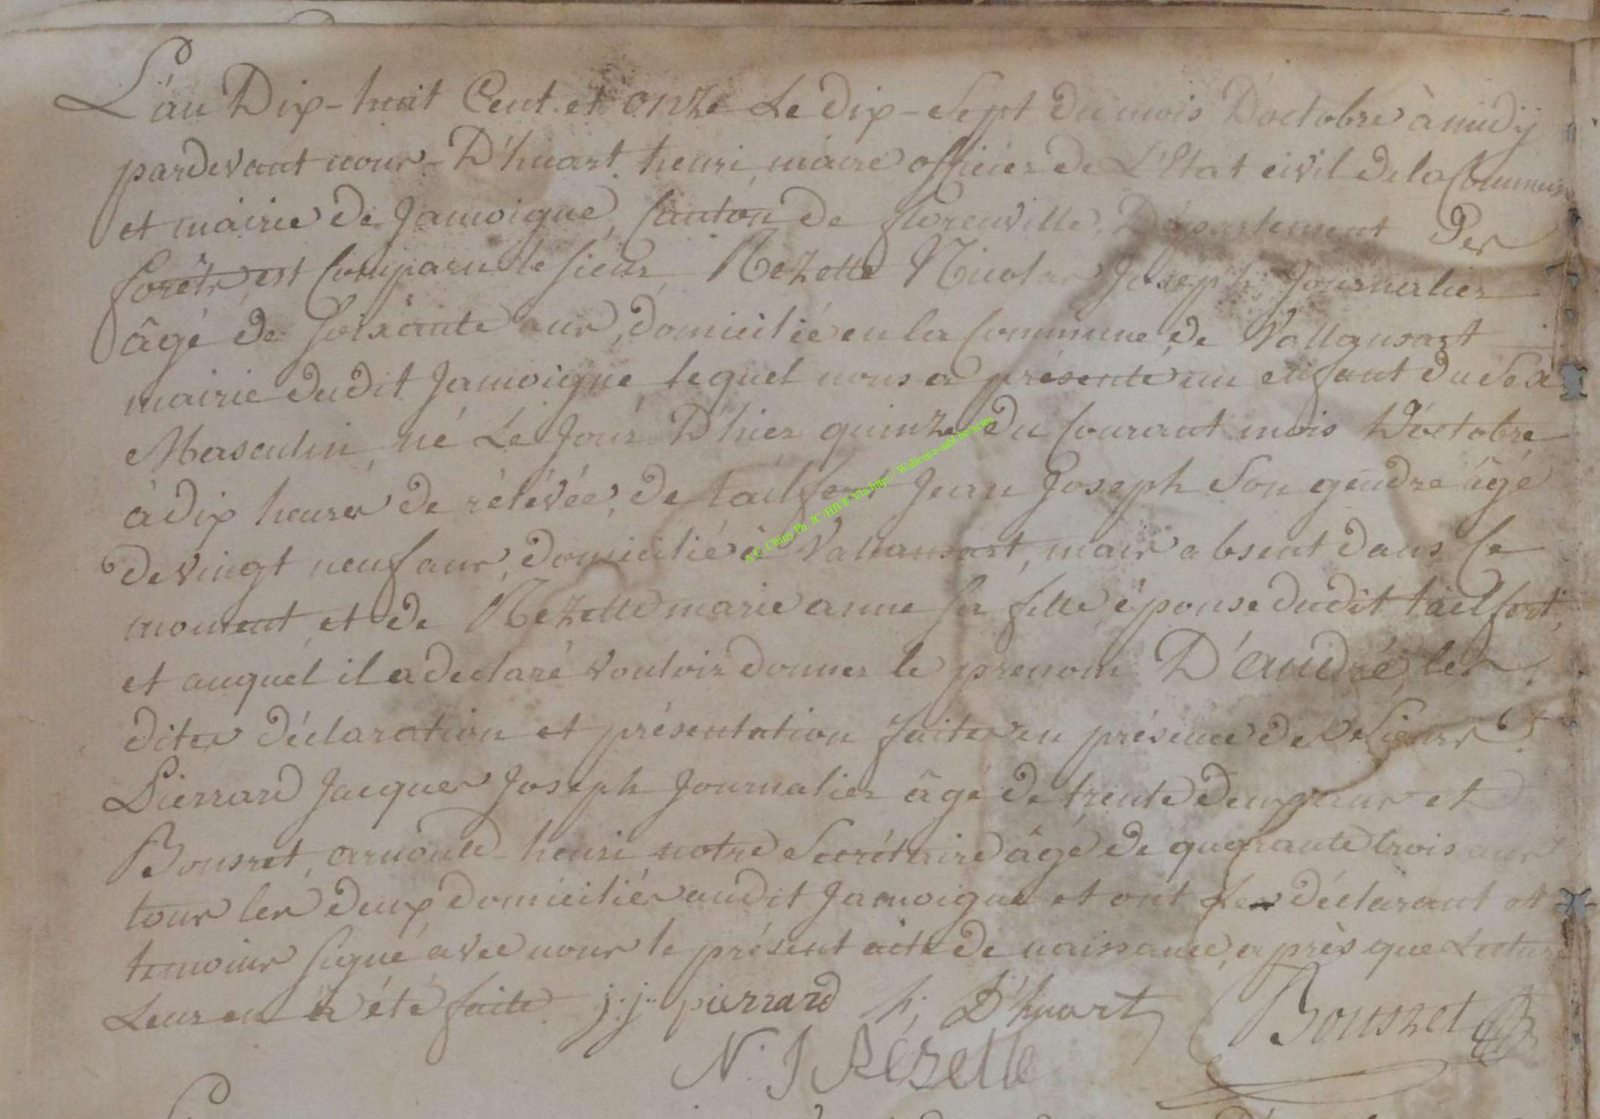 L'an Dix-huit Cent et onze Le dix-sept du mois D'octobre à midÿ
pardevant nous D'huart henri maire officier de L'Etat civil de la Commune
et mairie de Jamoigne, Canton de florenville, Département Des
forêts est Comparu le sieur Rezette Nicolas Joseph, Journalier
âgé de Soixante ans, domicilié en la Commune de Vallansart
mairie dudit Jamoigne lequel nous a présenté un enfant du Sex
Masculin, né Le Jour D'hier quinze du Courant mois D'octobre
à dix heures de rélévée, de tailfert Jean Joseph Son gendre âgé
de vingt neuf ans, domicilié à Vallansart, mais absent dans Ce
moment et de Rezette marie anne sa fille épouse dudit tailfert,
et auquel il a declaré vouloir donner le prenom D'andré, les
dites déclaration et présentation faites en présence des Sieurs
Pierrard Jacques Joseph Journalier âgé de trente deux ans et
Bousret, arnould-henri notre Secrétaire âgé de quarante trois ans
tous les deux domiciliés audit Jamoigne et ont les déclarant et
temoins signé avec nous le présent acte de naissance, après que Lecture
Leur en a été faite j: j: pierrard h; D'huart Bousret
N. J Rézette